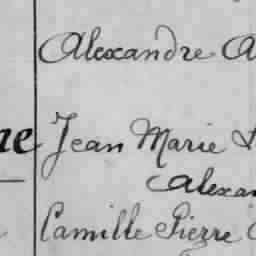 Alexandre A
ne Jean Marie
Alexan
Camille Pierre